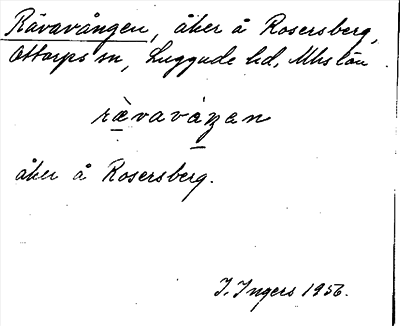 Rävavången, åker å Rosersberg,
Ottarps sn, Luggude hd, Mhs län.
rävavåŋen
åker å Rosersberg.
I. Ingers 1956.